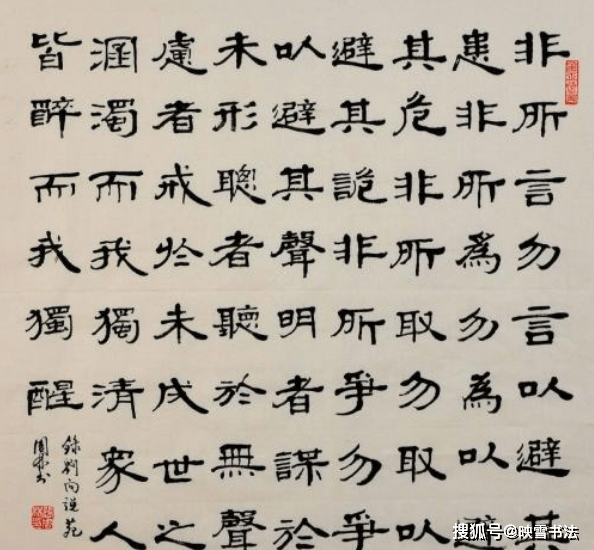 非所言勿言以避其
患非所為勿為以避
其危非所取勿取以
避其詭非所爭勿爭
以避其聲明者謀於
未形聰者聽於無聲
慮者戒於未成世之
溷濁而我獨清眾人
皆醉而我獨醒
錄劉向說苑
搜狐号@映雪书法